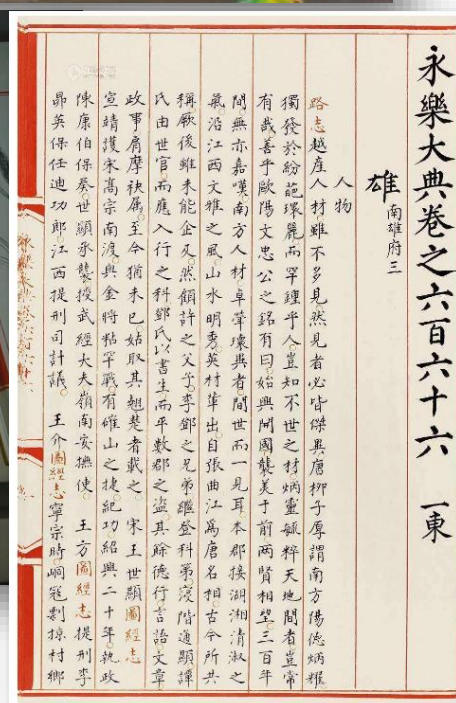 永樂大典卷之六百六十六 一東
雄 南雄府三
人物
路志越産人材雖不多見然見者必皆傑異唐柳子厚謂南方陽德炳耀
獨發於紛葩環麗而罕鍾乎人豈知不世之材炳靈毓粹天地間者豈常
有哉善乎歐陽文忠公之銘有曰始興開國襲美于前兩賢相望三百年
間無亦嘉嘆南方人材卓犖瓌異者間世而一見耳本郡接湖湘清淑之
氣沿江西文雅之風山水明秀英材軰出自張曲江爲唐名相古今所共
稱厥後雖未能企及然顧許之父子李鄧之兄弟繼登科第寖階通顯譚
氏由世官而應入行之科鄧氏以書生而平數郡之盗其餘德行言語文章
政事肩摩袂屬至今猶未已姑取其翹楚者載之 宋王世顯圖經志
宣靖護宋高宗南渡與金將粘罕戰有確山之捷紀功紹興二十年執政
陳康伯保奏世顯承襲授武經大夫嶺南安撫使 王方圖經志提刑李
昴英保任迪功郎江西提刑司計議 王介圖經志寧宗時峒宼剽掠村鄉